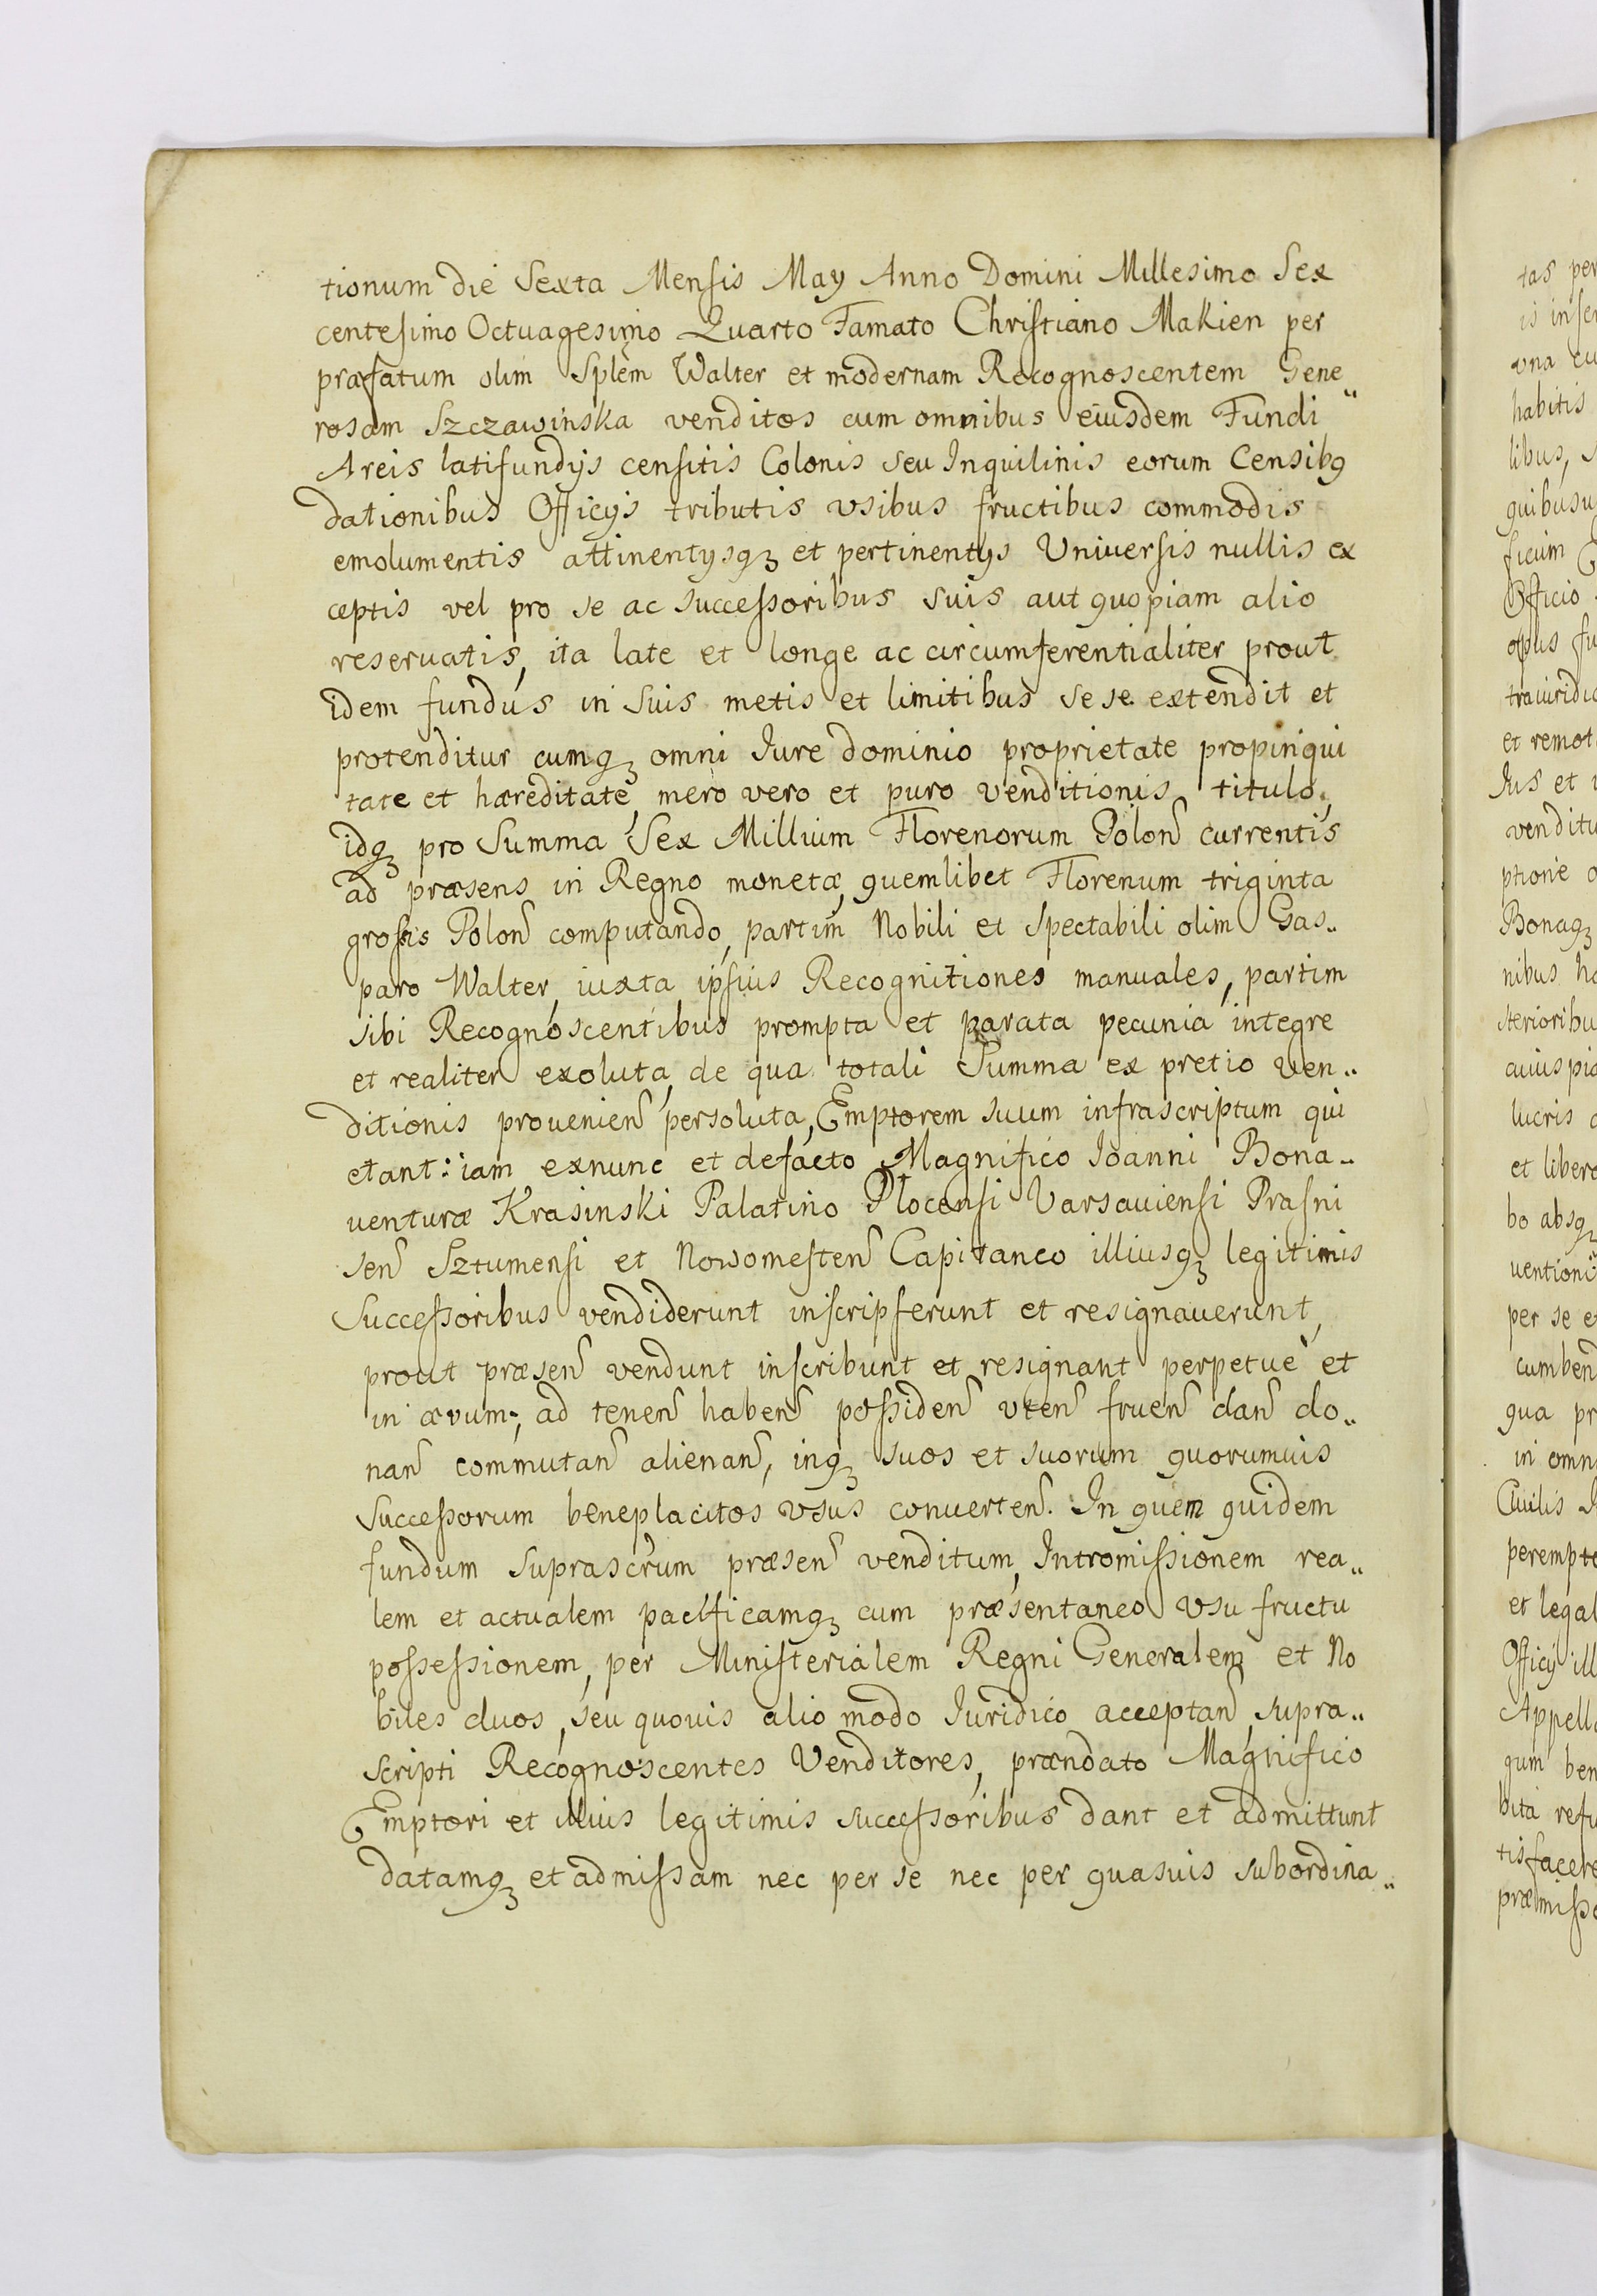 tionum die Sexta Mensis May Anno Domini Millesimo Sex
centesimo Octuagesimo Quarto Famato Christiano Makien per
præfatum olim Splem Walter et modernam Recognoscentem Gene„
rosam Szczawinska venditos cum omnibus eiusdem Fundi
Areis latifundijs censitis Colonis seu Inquilinis eorum Censibꝰ
dationibus Officijs tributis vsibus fructibus commodis
emolumentis attinentysqꝫ et pertinentys Vniuersis nullis ex
ceptis vel pro se ac successoribus suis aut quopiam alio
reseruatis, ita late et longe ac circumferentialiter prout
idem fundus in suis metis et limitibus sese extendit et
protenditur cumqꝫ omni Iure dominio proprietate propinqui
tate et hæreditate, mero vero et puro venditionis titulo,
idqꝫ pro Summa Sex Millium Florenorum Polon currentis
ad præsens in Regno monetæ, quemlibet Florenum triginta
grossis Polon computando, partim Nobili et Spectabili olim Gas„
paro Walter, iuxta ipsius Recognitiones manuales, partim
sibi Recognoscentibus prompta et parata pecunia integre
et realiter exoluta, de qua totali Summa ex pretio ven„
ditionis prouenien persoluta, Emptorem suum infrascriptum qui
etant: iam exnunc et defacto Magnifico Ioanni Bona„
uenturæ Krasinski Palatino Plocensi Varsauiensi Prasni
sen Sztumensi et Nowomesten Capitaneo illiusqꝫ legitimis
Successoribus vendiderunt inscripserunt et resignauerunt,
prout præsen vendunt inscribunt et resignant perpetue et
in ævum, ad tenen haben possiden vten fruen dan do„
nan commutan alienan, inqꝫ suos et suorum quorumuis
Successorum beneplacitos vsus conuerten. In quem quidem
fundum suprascrum præsen venditum, Intromissionem rea„
lem et actualem pacificamqꝫ cum præsentaneo vsu fructu
possessionem, per Ministerialem Regni Generalem et No
biles duos, seu quouis alio modo Iuridico acceptan, supra„
scripti Recognoscentes Venditores, prændato Magnifico
Emptori et illius legitimis successoribus dant et admittunt
datamqꝫ et admissam nec per se nec per quasuis subordina„
tas per
is inse
vna cu
habitis
libus,
quibusu
ficium
Officio
opus fu
trauiridic
et remot
Ius et
venditu
ptione
Bonaqꝫ
nibus ha
sterioribu
cuiuspia
lucris
et libera
bo absqꝫ
uentioni„
per se e
cumben
qua pr
in omn
Ciuilis
perempto
et legal
Officij ill
Appella
gum ben
bita refu
tisfacere
præmisso